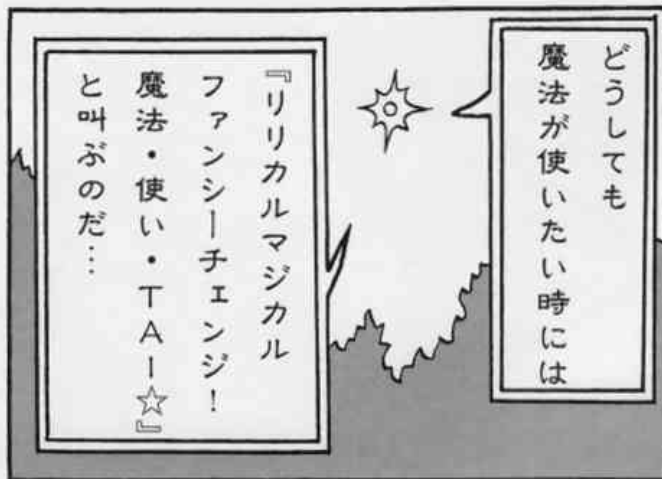 どうしても
魔法が使いたい時には
『リリカルマジカル
ファンシーチェンジ!
魔法・使い・TAI☆』
と叫ぶのだ…